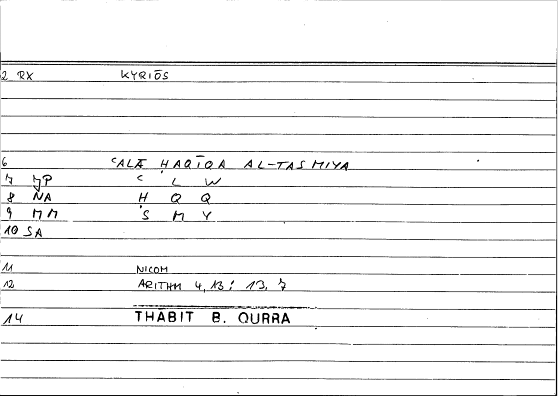 2 RX KYRIŌS
6 ʿALĀ ḤAQĪQA AL-TASMIYA
7 JP ʿ L W
8 NA Ḥ Q Q
9 MM S M Y
10 SA
11 NICOM
12 ARITHM 4,13 : 13,7
14 THĀBIT B. QURRA